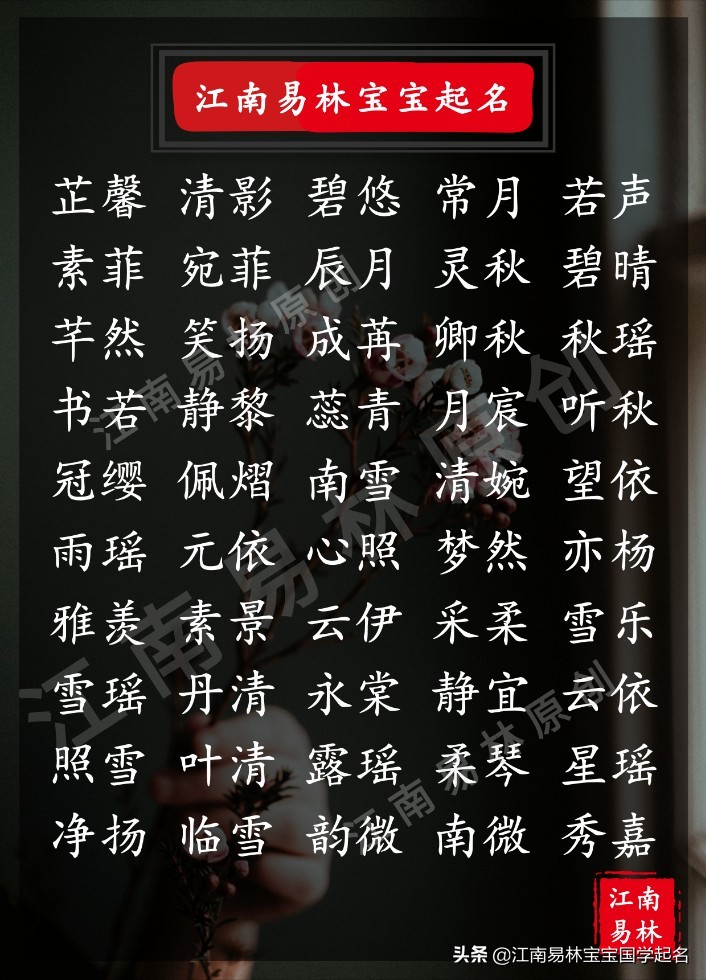 江南易林宝宝起名
芷馨 清影 碧悠 常月 若声
素菲 宛菲 辰月 灵秋 碧晴
芊然 笑扬 成苒 卿秋 秋瑶
书若 静黎 蕊青 月宸 听秋
冠缨 佩熠 南雪 清婉 望依
雨瑶 元依 心照 梦然 亦杨
雅羡 素景 云伊 采柔 雪乐
雪瑶 丹清 永棠 静宜 云依
照雪 叶清 露瑶 柔琴 星瑶
净扬 临雪 韵微 南微 秀嘉
江南易林原创
江南易林原创
江南易林原创
江南
易林
头条 @江南易林宝宝国学起名